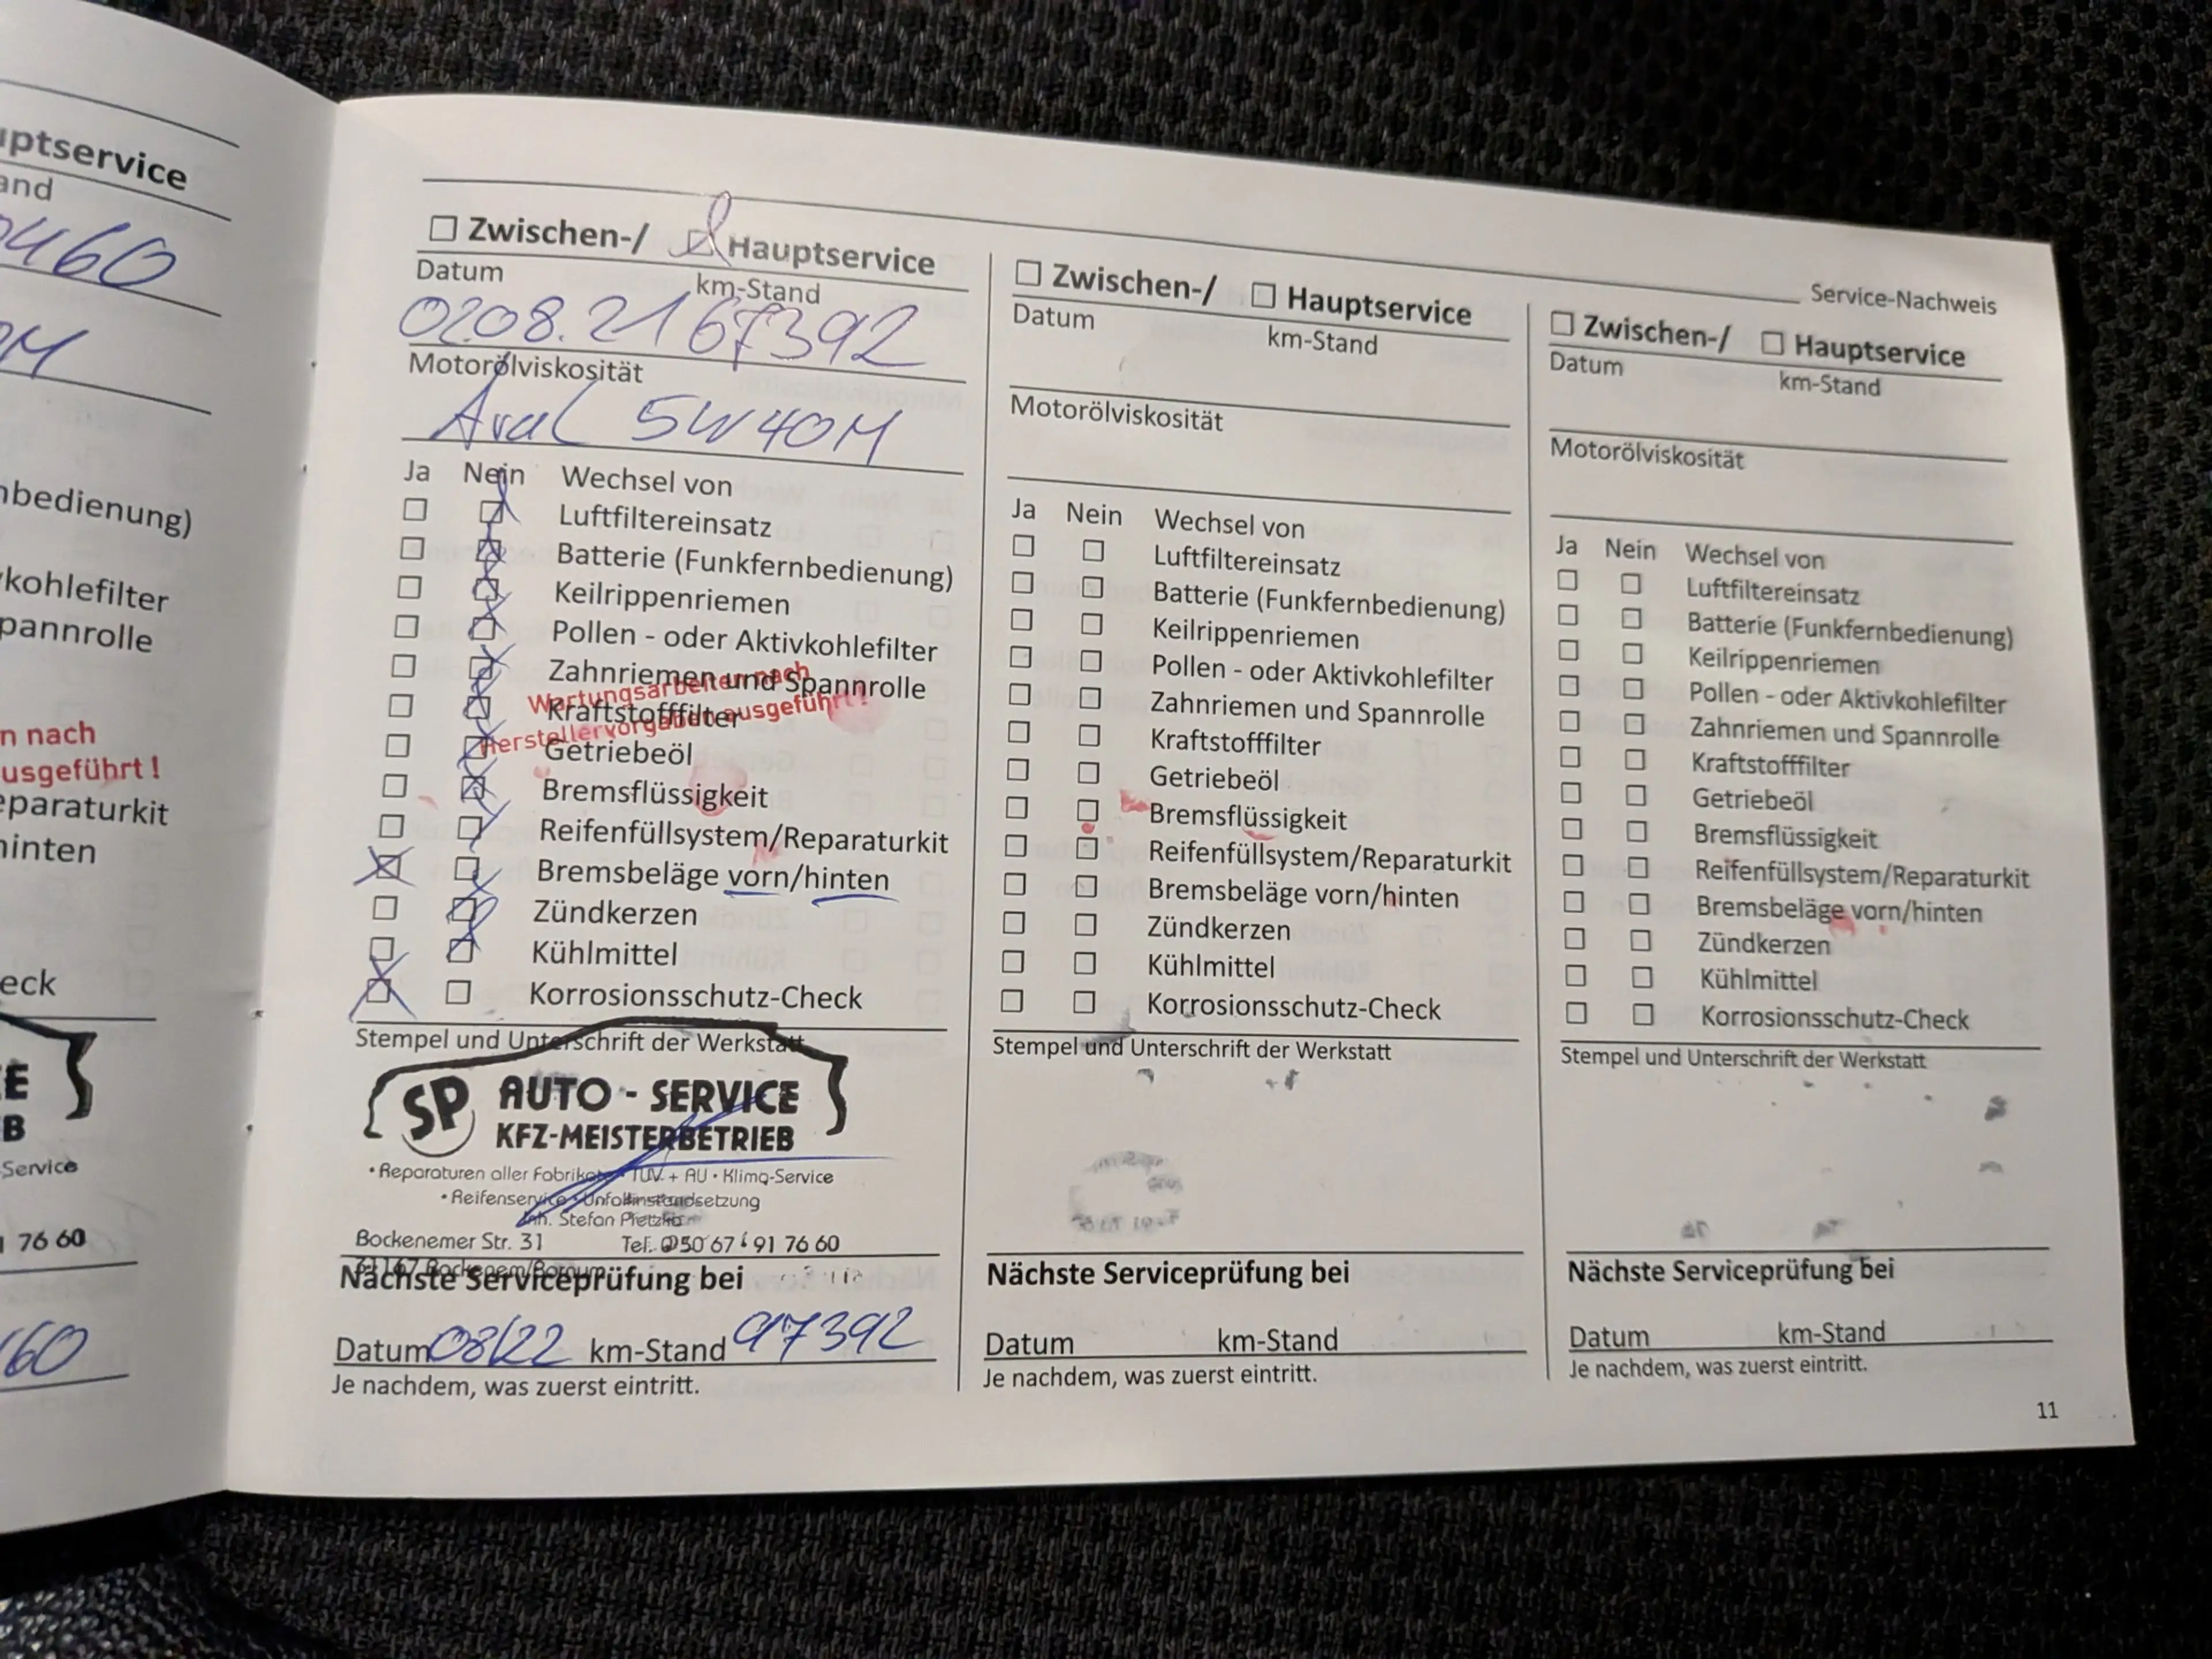 uptservice
and
460
nbedienung)
kohlefilter
pannrolle
n nach
usgeführt !
eparaturkit
hinten
eck
E
B
Service
76 60
60
Service-Nachweis
Zwischen-/ Hauptservice
Datum km-Stand
0208.21 67392
Motorölviskosität
Aral 5W40M
Ja Nein Wechsel von
Luftfiltereinsatz
Batterie (Funkfernbedienung)
Keilrippenriemen
Pollen - oder Aktivkohlefilter
Zahnriemen und Spannrolle
Wartungsarbeiten nach
Kraftstofffilter
Herstellervorgaben ausgeführt !
Getriebeöl
Bremsflüssigkeit
Reifenfüllsystem/Reparaturkit
Bremsbeläge vorn/hinten
Zündkerzen
Kühlmittel
Korrosionsschutz-Check
Stempel und Unterschrift der Werkstatt
SP AUTO - SERVICE
KFZ-MEISTERBETRIEB
• Reparaturen aller Fabrikate • TÜV + AU • Klima-Service
• Reifenservice • Unfallinstandsetzung
Inh. Stefan
Bockenemer Str. 31 Tel. 0 50 67 / 91 76 60
Nächste Serviceprüfung bei
Datum 08/22 km-Stand 97392
Je nachdem, was zuerst eintritt.
Zwischen-/ Hauptservice
Datum km-Stand
Motorölviskosität
Ja Nein Wechsel von
Luftfiltereinsatz
Batterie (Funkfernbedienung)
Keilrippenriemen
Pollen - oder Aktivkohlefilter
Zahnriemen und Spannrolle
Kraftstofffilter
Getriebeöl
Bremsflüssigkeit
Reifenfüllsystem/Reparaturkit
Bremsbeläge vorn/hinten
Zündkerzen
Kühlmittel
Korrosionsschutz-Check
Stempel und Unterschrift der Werkstatt
Nächste Serviceprüfung bei
Datum km-Stand
Je nachdem, was zuerst eintritt.
Zwischen-/ Hauptservice
Datum km-Stand
Motorölviskosität
Ja Nein Wechsel von
Luftfiltereinsatz
Batterie (Funkfernbedienung)
Keilrippenriemen
Pollen - oder Aktivkohlefilter
Zahnriemen und Spannrolle
Kraftstofffilter
Getriebeöl
Bremsflüssigkeit
Reifenfüllsystem/Reparaturkit
Bremsbeläge vorn/hinten
Zündkerzen
Kühlmittel
Korrosionsschutz-Check
Stempel und Unterschrift der Werkstatt
Nächste Serviceprüfung bei
Datum km-Stand
Je nachdem, was zuerst eintritt.
11